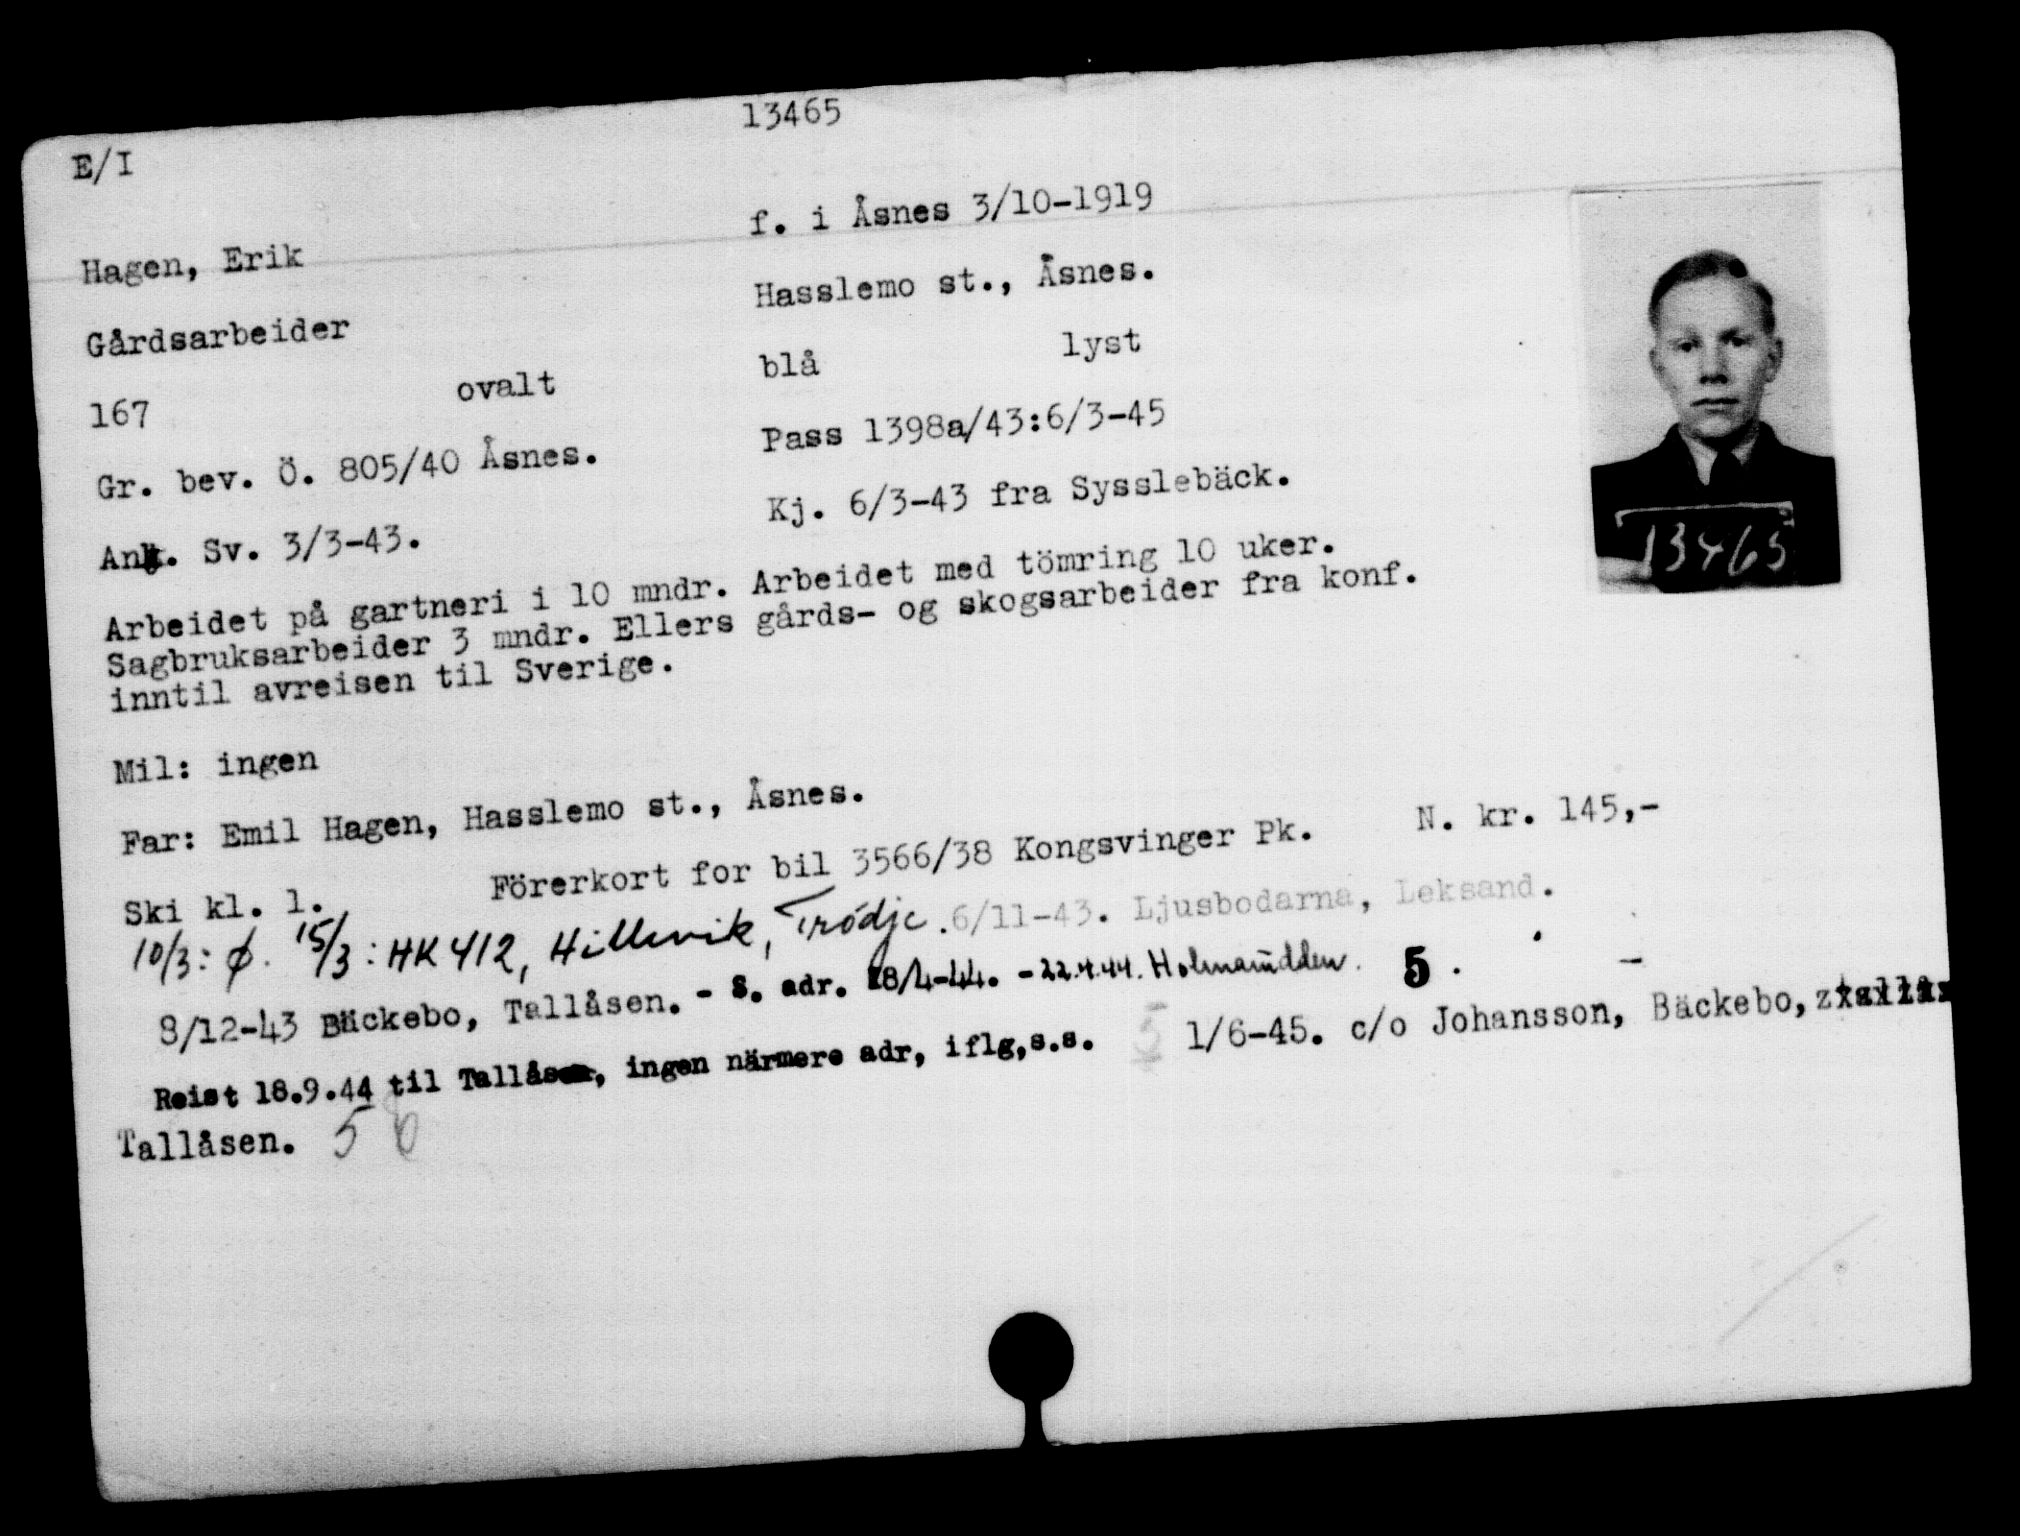 13465
E/I
Hagen, Erik f. i Åsnes 3/10-1919
Gårdsarbeider Hasslemo st., Åsnes.
167 ovalt blå lyst
Gr. bev. Ö. 805/40 Åsnes. Pass 1398a/43:6/3-45
Ank. Sv. 3/3-43. Kj. 6/3-43 fra Sysslebäck.
Arbeidet på gartneri i 10 mndr. Arbeidet med tömring 10 uker.
Sagbruksarbeider 3 mndr. Ellers gårds- og skogsarbeider fra konf.
inntil avreisen til Sverige.
Mil: ingen
Far: Emil Hagen, Hasslemo st., Åsnes.
Ski kl. 1. Förerkort for bil 3566/38 Kongsvinger Pk. N. kr. 145,-
10/3: ø. 15/3: HK 412, Hillevik, Trödje. 6/11-43. Ljusbodarna, Leksand.
8/12-43 Bäckebo, Tallåsen. - S. adr. 18/4-44. - 22.4.44. 5. -
Reist 18.9.44 til Tallåsen, ingen närmere adr, iflg,s.s. 5 1/6-45. c/o Johansson, Bäckebo,
Tallåsen. 5
13465